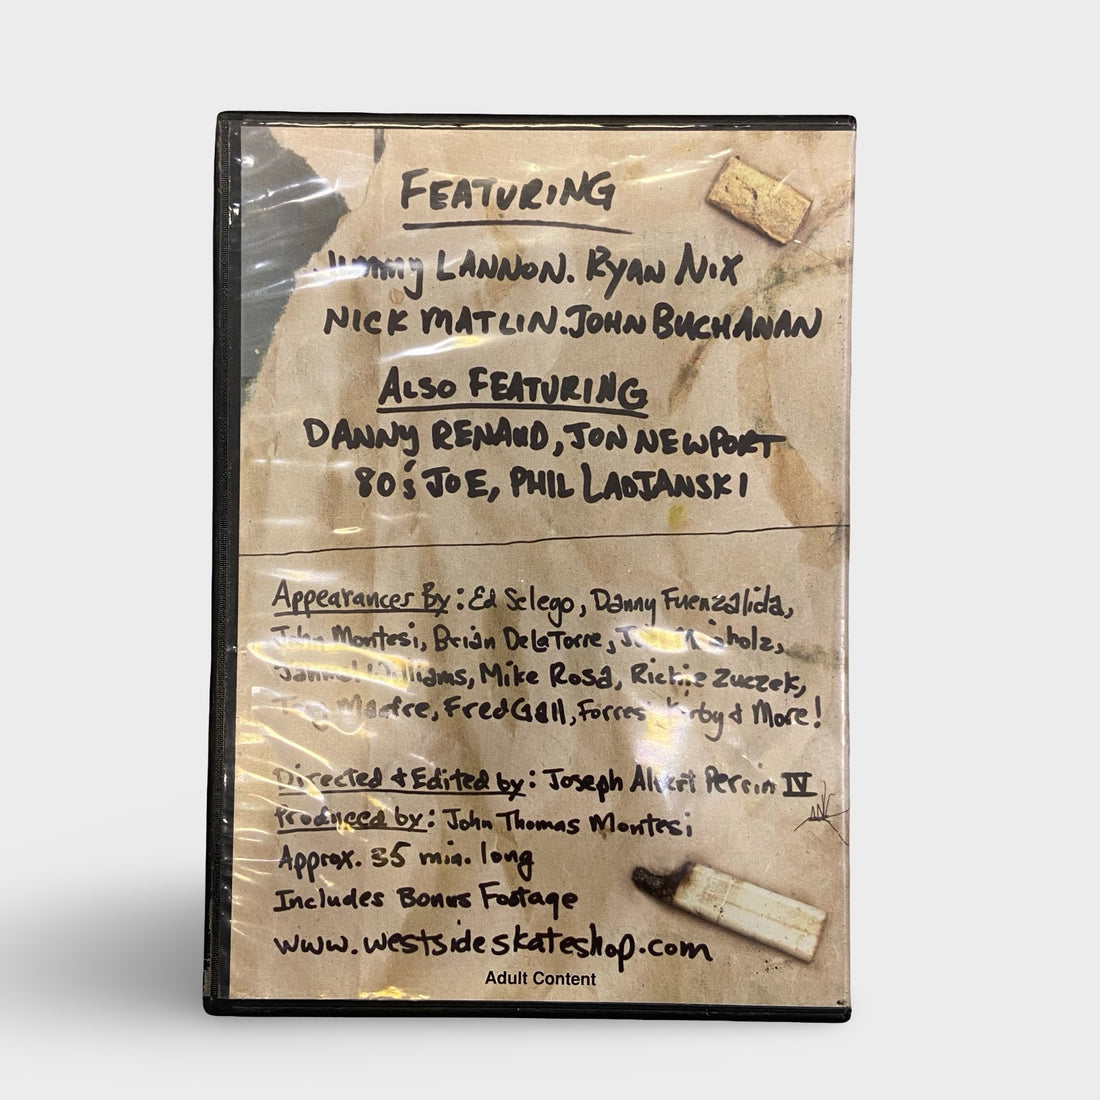 FEATURING
Jimmy LANNON. RYAN NIX
NICK MATLIN. JOHN BUCHANAN
ALSO FEATURING
DANNY RENAUD, JON NEWPORT
80's JOE, PHIL LADJANSKI
Appearances By: Ed Selego, Danny Fuenzalida,
John Montesi, Brian DeLaTorre,
Williams, Mike Rosa, Rickie Zuczek,
Manfre, Fred Gall, Forrest Kirby & More!
Directed & Edited by: Joseph Albert Perrin IV
Produced by: John Thomas Montesi
Approx. 35 min. long
Includes Bonus Footage
www.westsideskateshop.com
Adult Content